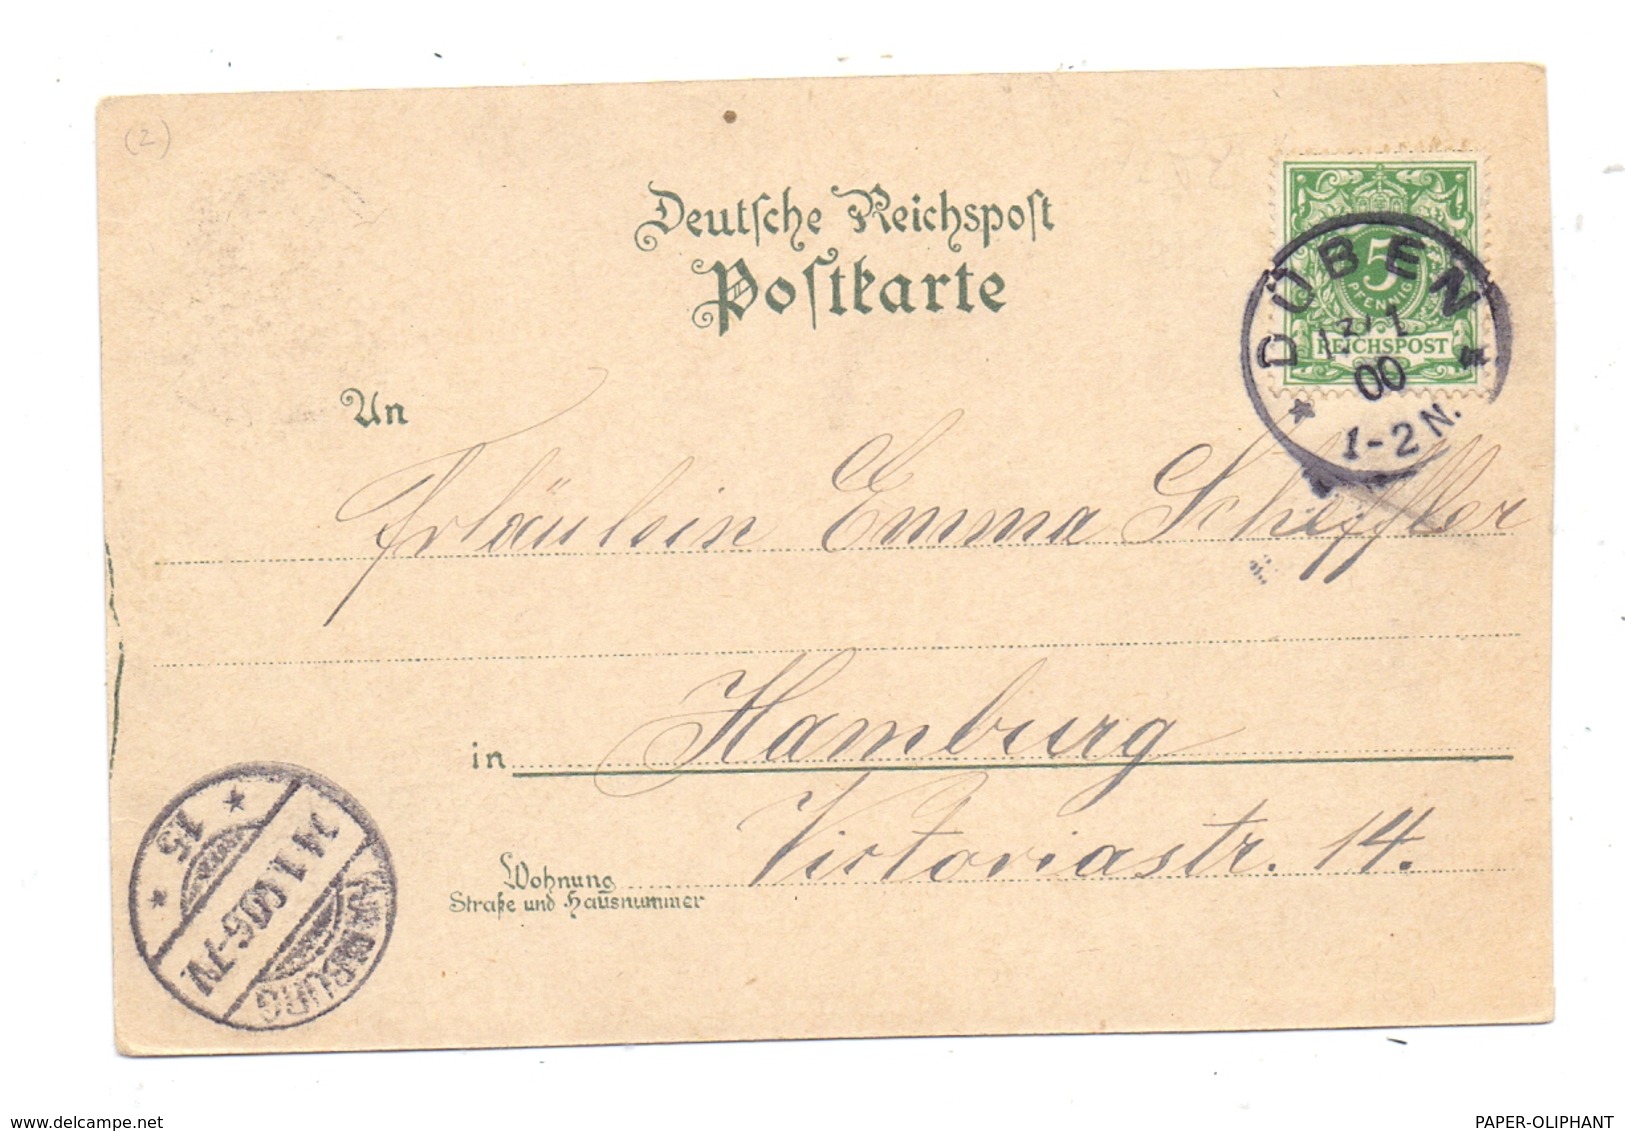 (2)
Deutsche Reichspost
Postkarte
5
PFENNIG
REICHSPOST
DÜBEN
13/1
00
1-2 N.
An
Fräulein Emma Scheffler
in Hamburg
Victoriastr. 14.
Wohnung
Straße und Hausnummer
HAMBURG
14.1.00 6-7N.
15
www.delcampe.net
PAPER-OLIPHANT